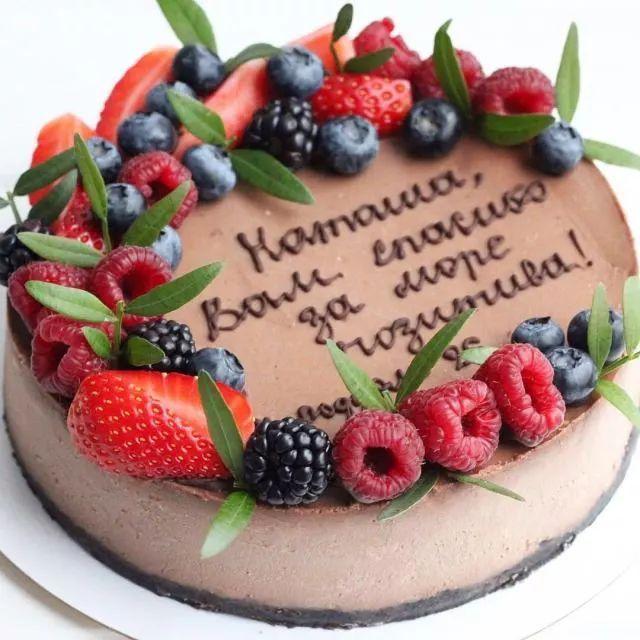 Наташа,
Вам спасибо
за море
позитива!